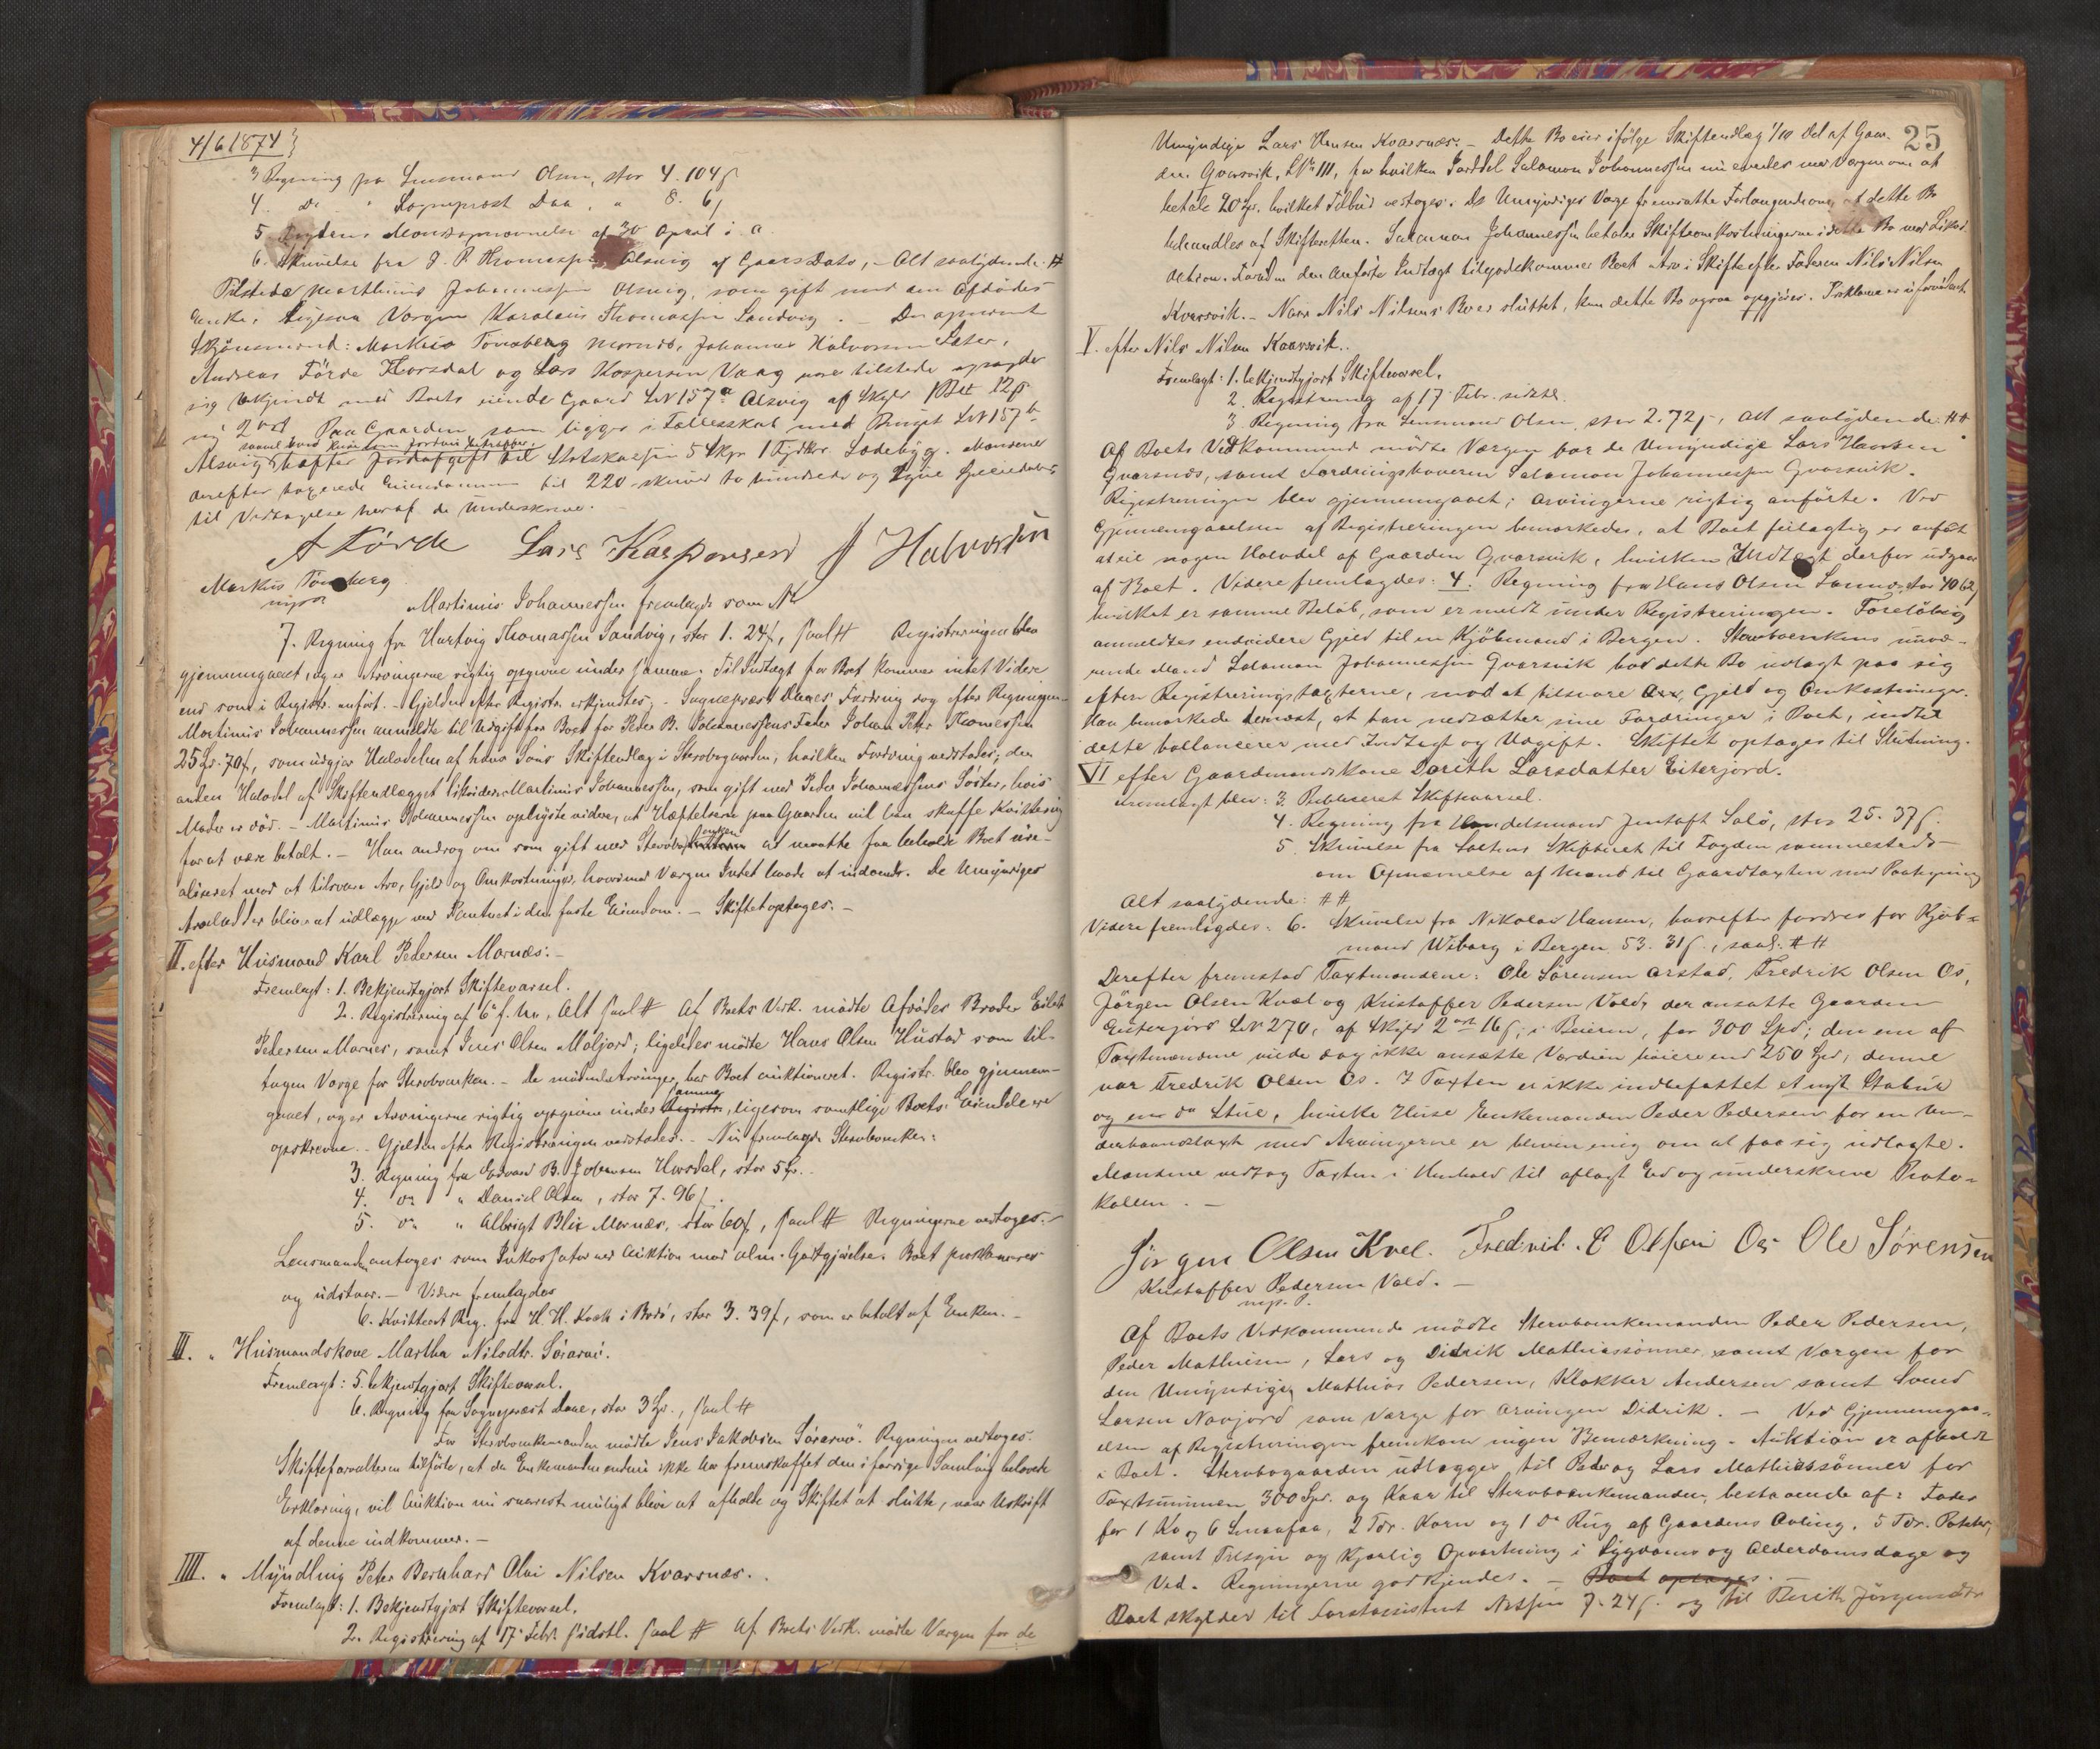 4/6 1874}
3 Regning fra Lensmand Olsen, stor 4. 104ſ
4. do " Sogneprest Daa, " 8. 6ſ
5 Fogdens Mandsopnævnelse af 30 April i. a.
6. Skrivelse fra J. P. Thomassen Alsvig af Gaars Dato, - Alt saalydende: #
Tilstede Marthinus Johannessen Alsvig, som gift med den Afdødes
Enke, ligesaa Værgen Karolius Thomassen Sandvig. - De opnævnte
Skjønsmænd: Markus Tønsberg Mornæs, Johannes Halvorsen Sæter,
Andreas Førde Horsdal og Lars Kaspersen Vaag vare tilstede opsagde
sig bekjendt med Boets eiende Gaard LN 157a Alsvig af Skyld 12ſ
ny 2 ort. Paa Gaarden som ligger i Fællesskab med Bruget LN 157b
Alsvig hæfter Jordafgift til Statskassen 54 Skpr 1 Fjdkr Ladebyg. Mændene
derefter taxerede Eiendommen til 220 skriver to hundrede og tyve Speciedaler
til Vedtagelse heraf de Underskrive.
A Førde Lars Kaspersen J Halvorsen
Markus Tønsberg
mpp
Martinus Johannessen fremlagde som No
7. Regning fra Hartvig Thomassen Sandvig, stor 1. 24ſ, saal # Registreringen blev
gjennemgaaet, og er Arvingerne rigtig opgivne under samme. Til Indtægt for Boet kommer intet Videre
end som i Registr. anført. - Gjelden efter Registr. erkjendtes; - Sogneprest Daaes Fordring dog efter Regningen
Martinus Johannessen anmeldte til Udgift for Boet for Peder B. Johannessens Fader Johan Peter Thomessen
25 Spd. 70ſ, som udgjør Halvdelen af hans Søns Skifteudlæg i Stervbogaarden, hvilken Fordring vedtages; den
anden Halvdel af Skifteudlægget likviderer Martinus Johannessen, som gift med Peder Johannessens Søster, hvis
Moder er død. - Martinus Johannessen oplyste videre, at Hæftelserne paa Gaarden vil han skaffe Kvittering
for at være betalt. - Han androg om som gift med Stervboenken at maatte faa beholde Boet ure-
aliseret mod at tilsvare Arv, Gjeld og Omkostninger, hvorimod Værgen Intet havde at indvende. De Umyndiges
Arvelodder bliver at udlægge med Panteret i den faste Eiendom. - Skiftet optages. -
II. efter Husmand Karl Pedersen Mornæs: -
Fremlagt: 1. Bekjendtgjort Skiftevarsel.
2. Registrering af 6te f. M., Alt saal # Af Boets Vedk. mødte Afdødes Broder Eilert
Pedersen Mornes, samt Jens Olsen Maljord; ligeledes mødte Hans Olsen Hustad som til-
tagen Værge for Stervboenken. - De mødendes Arvinger har Boet auktioneret. Registr. blev gjennem-
gaaet, og er Arvingerne rigtig opgivne under samme, ligesom samtlige Boets Eiendele er
opskrevne. - Gjelden efter Registreringen vedtages. - Nu fremlagde Stervboenken:
3. Regning fra Edvard B. Johansen Horsdal, stor 5 Spd.
4. do " Daniel Olsen, stor 7. 96ſ.
5. do " Albrigt Blix Mornæs, stor 60ſ, saal # Regningerne vedtoges. -
Lensmanden antoges som Inkassator ved Auktion mod alm. Godtgjørelse. Boet proklameres
og udstaar. - Videre fremlagdes
6. Kvitteret Reg. fra H. H. Koch i Bodø, stor 3. 39ſ, som er betalt af Enken. -
III. " Husmandskone Martha Nilsdtr. Sørarnø.
Fremlagt: 5. bekjendtgjort Skiftevarsel.
6. Regning fra Sogneprest Daae, stor 3 Spd., saal #
For Stervboenkemanden mødte Jens Jakobsen Sørarnø. Regningen vedtoges.
Skifteforvalteren tilførte, at da Enkemanden endnu ikke har fremskaffet den i forrige Samling belovede
Erklæring, vil Auktion nu snarest muligt blive at afholde og Skiftet at slutte, naar Udskrift
af denne indkommer. -
IIII. " Myndling Peter Bernhard Olai Nilsen Kvarsnæs. -
Fremlagt: 1. Bekjendtgjort Skiftevarsel.
2. Registrering af 17 Febr. sidstl. saal # Af Boets Vedk. mødte Værgen for de
25
Umyndige Lars Hansen Kvarsnæs. - Dette Bo eier ifølge Skifteudlæg 1/10 Del af Gaar-
den Qvarsvik, LNr 111, for hvilken Jorddel Salamon Johannessen nu enedes med Værgen om at
betale 20 Spd. hvilket Tilbud vedtoges. De Umyndiges Værge fremsatte Forlangende om at dette Bo
behandles af Skifteretten. Salamon Johannessen betaler Skifteomkostningerne i dette Bo med Liksed.
Foruden den anførte Indtægt tilgodekommer Boet Arv i Skifte efter Faderen Nils Nilsen
Kvarsvik. - Naar Nils Nilsens Bo er sluttet, kan dette Bo ogsaa opgjøres. Proklama er ufornødent.
V. efter Nils Nilsen Kvarsvik.
Fremlagt: 1. bekjendtgjort Skiftevarsel.
2. Registrering af 17 Febr. sidstl.
3. Regning fra Lensmand Olsen, stor 2.72ſ, alt saalydende: ##
Af Boets Vedkommende mødte Værgen for de Umyndige Lars Hansen
Qvarsnæs, samt Fordringshaveren Salamon Johannessen Qvarsvik.
Registreringen blev gjennemgaaet; Arvingerne rigtig anførte. Ved
Gjennemgaaelsen af Registreringen bemærkedes, at Boet feilagtig er anført
at eie nogen Halvdel af Gaarden Qvarsvik, hvilken Indtægt derfor udgaar
af Boet. Videre fremlagdes: 4. Regning fra Hans Olsen, stor 40 62ſ
hvilket er samme Beløb, som er meldt under Registreringen. Foreløbig
anmeldtes endvidere Gjeld til en Kjøbmand i Bergen. Stervboenkens nuvæ-
rende Mand Salamon Johannessen Qvarsvik bød dette Bo udlagt paa sig
efter Registreringstaxterne, mod at tilsvare Arv, Gjeld og Omkostninger.
Han bemærkede dernæst, at han nedsætter sine Fordringer i Boet, indtil
dette ballancerer med Indtægt og Udgift. Skiftet optages til Slutning.
VI efter Gaardmandskone Dorith Larsdatter Eiterjord.
Fremlagt blev: 3. Publiceret Skiftevarsel.
4. Regning fra Handelsmand Jentoft Salø, stor 25. 37ſ.
5. Skrivelse fra Saltens Skifteret til Fogden sammesteds
om Opnævnelse af Mænd til Gaardtaxten med Paategning
Alt saalydende: ##
Videre fremlagdes: 6. Skrivelse fra Nikolai Hansen, hvorefter fordres for Kjøb-
mand Wiborg i Bergen 53. 31ſ., saal. ##
Derefter fremstod Taxtmændene: Ole Sørensen Arstad, Fredrik Olsen Os,
Jørgen Olsen Kvæl og Kristoffer Pedersen Vold, der ansatte Gaarden
Eiterjord LN 270, af Skyld 2 ort 16ſ, i Beieren, for 300 Spd; den ene af
Taxtmændene vilde dog ikke ansætte Værdien høiere end 250 Spd, denne
var Fredrik Olsen Os. I Taxten er ikke indbefattet et nyt Stabur
og en do Stue, hvilke Huse Enkemanden Peder Pedersen for en Un-
derhaandstaxt med Arvingerne er bleven enig om at faa sig udlagte.
Mændene vedtog Taxten i Henhold til aflagt Ed og underskreve Proto-
kollen. -
Jørgen Olsen Kvel. Fredrik. E Olsen Os Ole Sørensen
Kristoffer Pedersen Vold. -
m.p.P.
Af Boets Vedkommende mødte Stervboenkemanden Peder Pedersen,
Peder Mathisen, Lars og Didrik Mathiassønner, samt Værgen for
den Umyndige, Mathias Pedersen, Klokker Andersen samt Svend
Larsen Navjord som Værge for Arvingen Didrik. - Ved Gjennemgaa-
elsen af Registreringen fremkom ingen Bemærkning. Auktion er afholdt
i Boet. Stervbogaarden udlægges til Peder og Lars Mathiassønner for
Taxtsummen 300 Spd. og Kaar til Stervboenkemanden, bestaaende af: Foder
for 1 Ko og 6 Smaafæ, 2 Tdr. Korn og 1 do Rug af Gaardens Avling, 5 Tdr. Poteter,
samt Tilsyn og Kjærlig Opvartning i Sygdoms og Alderdomsdage og
Ved. Regningerne godkjendes. - Boet optages.
Boet skylder til Forstassistent 7. 24ſ. og til Berith Jørgensdtr